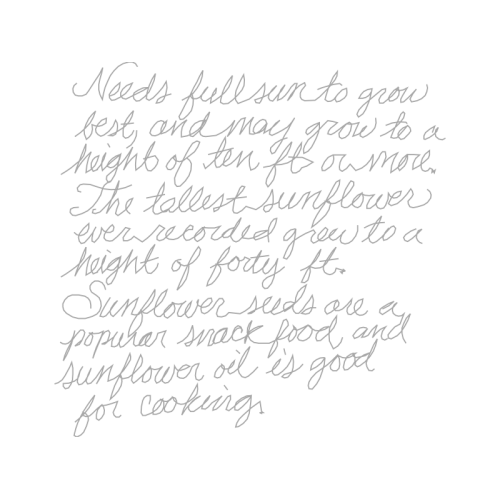 Needs full sun to grow
best, and may grow to a
height of ten ft or more.
The tallest sunflower
ever recorded grew to a
height of forty ft.
Sunflower seeds are a
popular snack food, and
sunflower oil is good
for cooking.